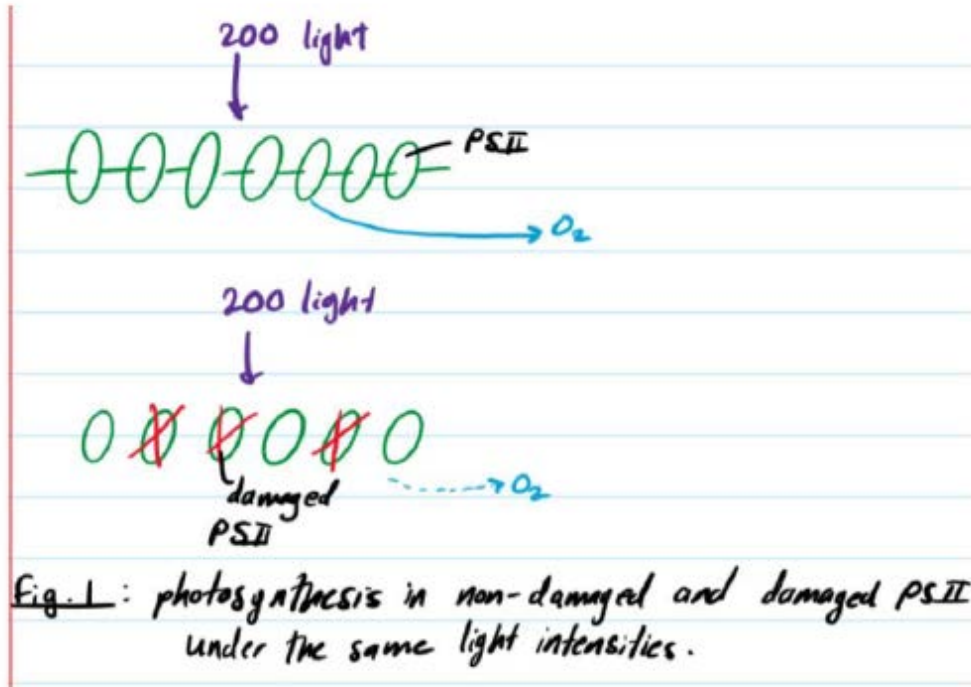 200 light
PSII
O₂
200 light
O₂
damaged
PSII
Fig. 1 : photosynthesis in non-damaged and damaged PSII
under the same light intensities.